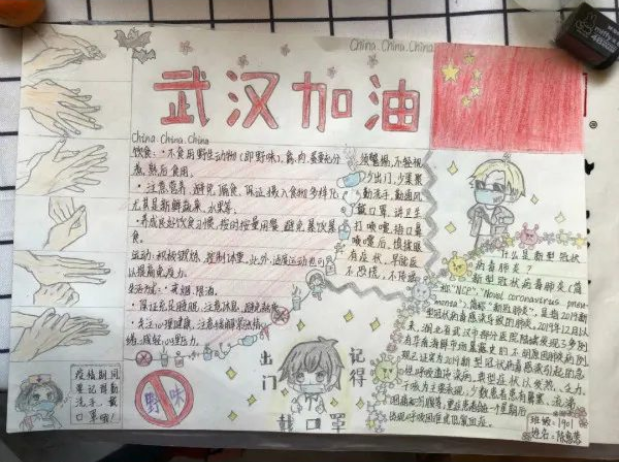 China. China. China
武汉加油
China. China. China
饮食：·不食用野生动物（即野味），禽、肉、蛋要充分
煮熟后食用。
·注意营养，避免偏食，保证摄入食物多样化
尤其是新鲜蔬菜、水果等。
·养成良好饮食习惯，按时按量用餐，避免暴饮暴
食。
运动：积极锻炼，控制体重，此外，适度运动也可
以提高免疫力。
生活方式：·戒烟、限酒。
·保证充足睡眠，注意休息，避免
·关注心理健康，
绪，缓解心理压力。
须警惕，不轻视
少出门，少聚集
勤洗手，勤通风
戴口罩，讲卫生
打喷嚏，捂口鼻
喷嚏后，慎揉眼
有症状，早就医
不恐慌，不传谣
什么是新型冠状
病毒肺炎？
新型冠状病毒肺炎（简
称"NCP"，"Novel coronavirus pneu-
monea"）简称"新冠肺炎"，是指2019新
型冠状病毒感染导致的肺炎。2019年12月以
来，湖北省武汉市部分医院陆续发现了多例
有华南海鲜市场暴露史的不明原因肺炎病例
现已证实为2019新型冠状病毒感染引起的急
性呼吸道传染病，典型症状以发热、乏力、
干咳为主要表现，少数患者患有鼻塞、流涕
出现呼吸困难
疫情期间
要记得勤
洗手、戴
口罩哦！
野味
出门
记得
戴口罩
班级：1901
姓名：陈